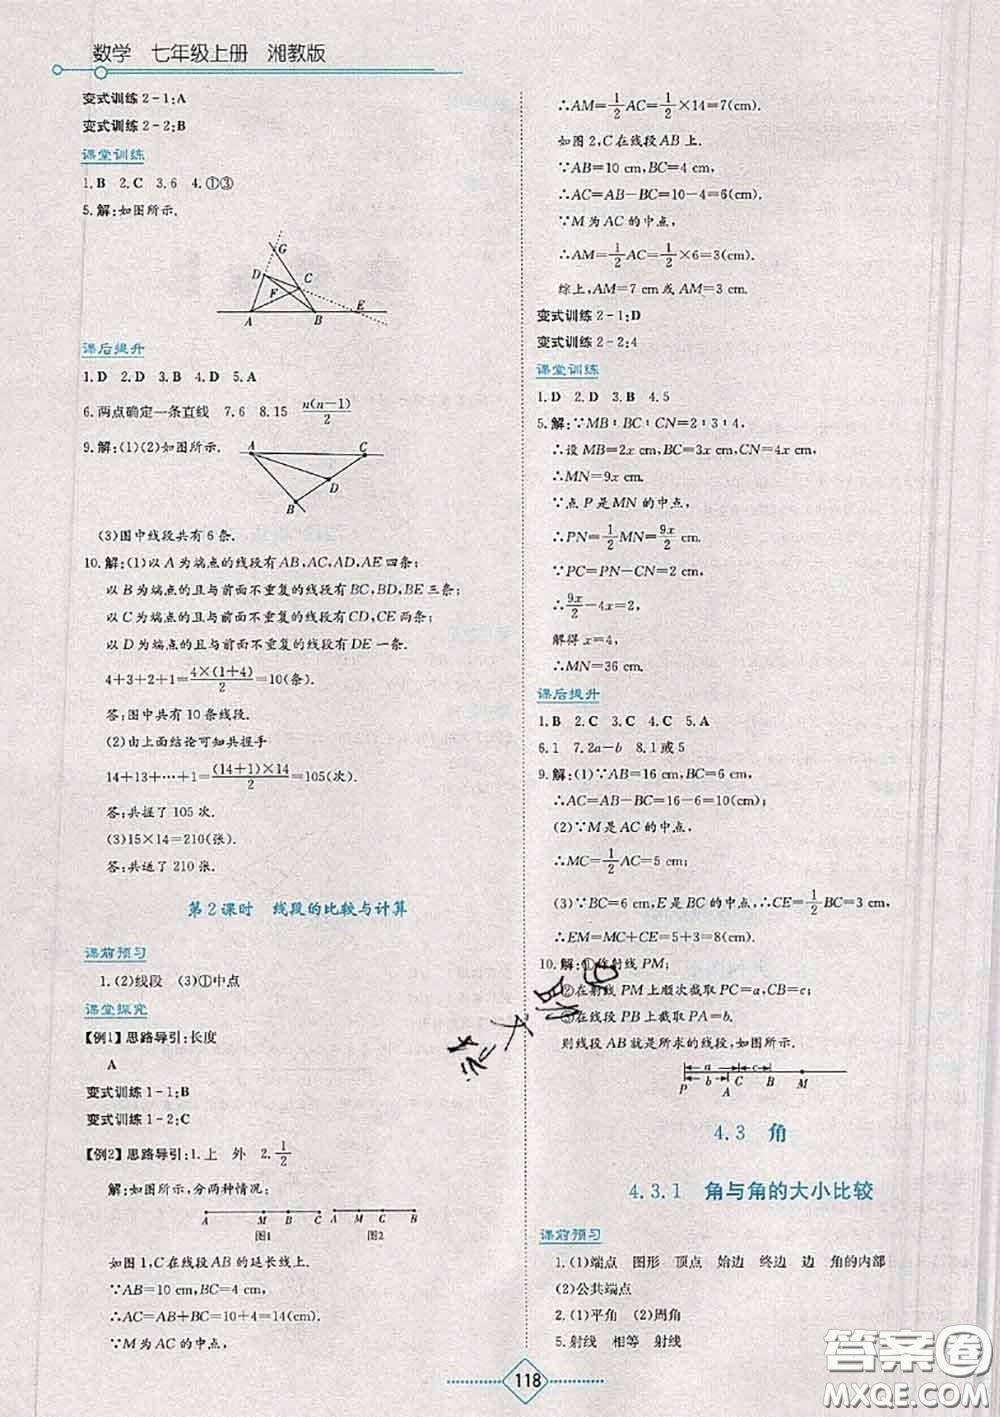 数学 七年级上册 湘教版
变式训练2-1:A
变式训练2-2:B
课堂训练
1.B 2.C 3.6 4.①③
5.解:如图所示.
G
D
C
F
E
A
B
课后提升
1.D 2.D 3.B 4.D 5.A
6.两点确定一条直线 7.6 8.15 n(n-1)/2
9.解:(1)(2)如图所示.
A
C
D
B
(3)图中线段共有6条.
10.解:(1)以A为端点的线段有AB,AC,AD,AE四条;
以B为端点的且与前面不重复的线段有BC,BD,BE三条;
以C为端点的且与前面不重复的线段有CD,CE两条;
以D为端点的且与前面不重复的线段有DE一条.
4+3+2+1=4×(1+4)/2=10(条).
答:图中共有10条线段.
(2)由上面结论可知共握手
14+13+…+1=(14+1)×14/2=105(次).
答:共握了105次.
(3)15×14=210(张).
答:共送了210张.
第2课时 线段的比较与计算
课前预习
1.(2)线段 (3)①中点
课堂探究
【例1】思路导引:长度
A
变式训练1-1:B
变式训练1-2:C
【例2】思路导引:1.上 外 2.1/2
解:如图所示,分两种情况:
A M B C
图1
A M C B
图2
如图1,C在线段AB的延长线上.
∵AB=10 cm,BC=4 cm,
∴AC=AB+BC=10+4=14(cm).
∵M为AC的中点,
∴AM=1/2AC=1/2×14=7(cm).
如图2,C在线段AB上.
∵AB=10 cm,BC=4 cm,
∴AC=AB-BC=10-4=6(cm).
∵M为AC的中点,
∴AM=1/2AC=1/2×6=3(cm).
综上,AM=7 cm或AM=3 cm.
变式训练2-1:D
变式训练2-2:4
课堂训练
1.D 2.D 3.B 4.5
5.解:∵MB∶BC∶CN=2∶3∶4,
∴设MB=2x cm,BC=3x cm,CN=4x cm.
∴MN=9x cm.
∵点P是MN的中点,
∴PN=1/2MN=9x/2 cm.
∵PC=PN-CN,
∴9x/2-4x=2,
解得x=4,
∴MN=36 cm.
课后提升
1.B 2.C 3.C 4.C 5.A
6.1 7.2a-b 8.1或5
9.解:(1)∵AB=16 cm,BC=6 cm,
∴AC=AB-BC=16-6=10(cm);
(2)∵M是AC的中点,
∴MC=1/2AC=5 cm;
(3)∵BC=6 cm,E是BC的中点,∴CE=1/2BC=3 cm,
∴EM=MC+CE=5+3=8(cm).
10.解:①作射线PM;
②在射线PM上顺次截取PC=a,CB=c;
③在线段PB上截取PA=b.
则线段AB就是所求的线段,如图所示.
a c
b
P A C B M
4.3 角
4.3.1 角与角的大小比较
课前预习
1.(1)端点 图形 顶点 始边 终边 边 角的内部
(2)公共端点
2.(1)平角 (2)周角
5.射线 相等 射线
118
答案圈
MXQE.COM